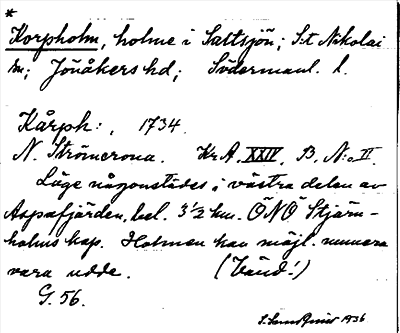 *
Korpholm, holme i Saltsjön; S:t Nikolai
sn; Jönåkers hd; Södermanl. l.
Kårph:, 1734.
N. Strömcrona. Kr.A. XXIV. B. N:o II.
Låge någonstädes i västra delen av
Aspafjärden, bel. 3 ½ km. ÖNÖ Stjärn-
holms kap. Holmen kan möjl. numera
vara udde. (Vänd!)
G. 56.
1936